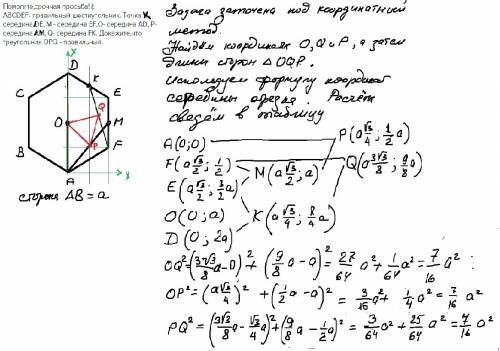 Помогите,срочная просьба!(:
ABCDEF- правильный шестиугольник. Точка К-
середина DE, M - середина EF,О- середина AD, P-
середина AM, Q- середина FK. Докажите,что
треугольник OPQ - правильный.
Задача заточена под координатный
метод.
Найдём координаты O, Q и P, а затем
длины сторон △OQP.
Используем формулу координат
середины отрезка. Расчёт
сведём в таблицу
x
D
K
C
E
Q
O
M
P
B
F
A
x
сторона AB = a
A(0;0)
P(a√3/4; 1/2 a)
F(a√3/2; 1/2)
M(a√3/2; a)
Q(a 3√3/8; 9/8 a)
E(a√3/2; 3/2 a)
O(0; a)
K(a√3/4; 8/4 a)
D(0; 2a)
OQ²=(3√3/8 a-0)²+(9/8 a-a)²=27/64 a²+1/64 a²=7/16 a²
OP²=(a√3/4)²+(1/2 a-a)²=3/16 a²+1/4 a²=7/16 a²
PQ²=(3√3/8 a-√3/4 a)²+(9/8 a-1/2 a)²=3/64 a²+25/64 a²=7/16 a²